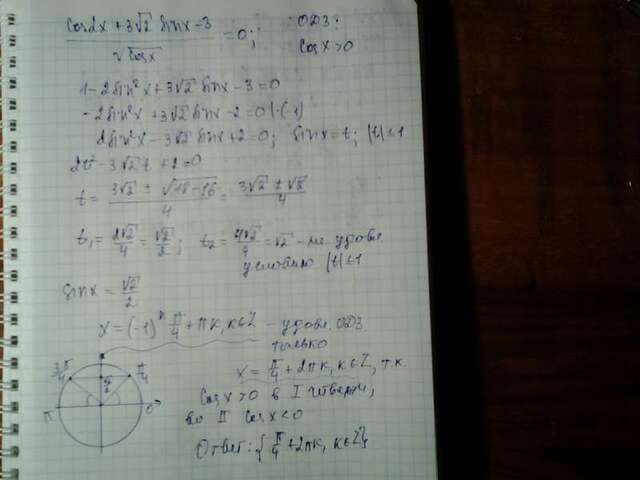 cos2x + 3√2 sinx - 3 / √cosx = 0; ОДЗ: cosx > 0
1 - 2sin²x + 3√2 sinx - 3 = 0
-2sin²x + 3√2 sinx - 2 = 0 |·(-1)
2sin²x - 3√2 sinx + 2 = 0; sinx = t; |t| ≤ 1
2t² - 3√2 t + 2 = 0
t = 3√2 ± √18-16 / 4 = 3√2 ± √2 / 4
t₁ = 2√2/4 = √2/2; t₂ = 4√2/4 = √2 - не удовл.
условию |t| ≤ 1
sinx = √2/2
x = (-1)ᵏ π/4 + πk, k∈Z - удовл. ОДЗ
только
x = π/4 + 2πk, k∈Z, т.к.
cosx > 0 в I четверти,
во II cosx < 0
Ответ: {π/4 + 2πk, k∈Z}
3π/4
π/4
π
0